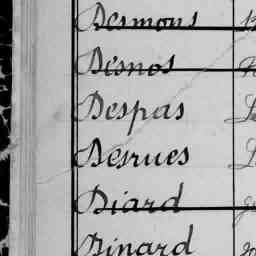 Desmons
Désnos
Despas
Desrues
Diard
Dinard